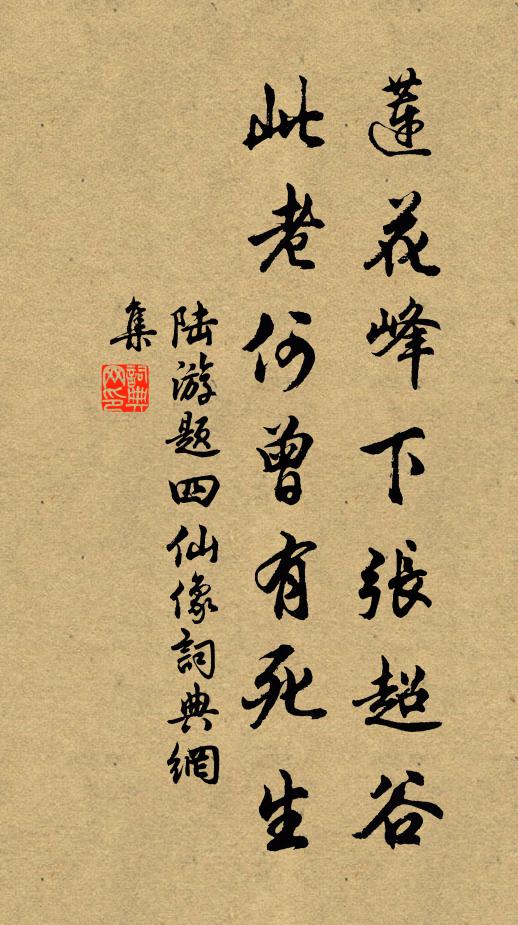 蓮花峰下張超谷
此老何曾有死生
陸游題四仙像詞典網
集
詞典
网印